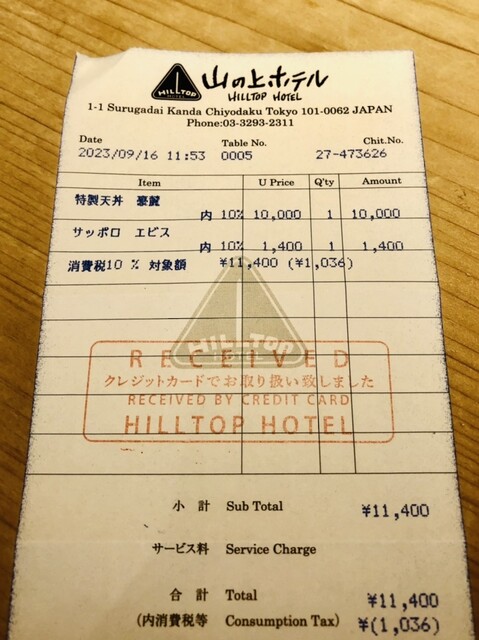 HILLTOP
HOTEL
山の上ホテル
HILLTOP HOTEL
1-1 Surugadai Kanda Chiyodaku Tokyo 101-0062 JAPAN
Phone:03-3293-2311
Date Table No. Chit.No.
2023/09/16 11:53 0005 27-473626
Item U Price Q'ty Amount
特製天丼 豪龍
内 10% 10,000 1 10,000
サッポロ エビス
内 10% 1,400 1 1,400
消費税10 % 対象額 ¥11,400 (¥1,036)
HILLTOP
HOTEL
RECEIVED
クレジットカードでお取り扱い致しました
RECEIVED BY CREDIT CARD
HILLTOP HOTEL
小 計 Sub Total ¥11,400
サービス料 Service Charge
合 計 Total ¥11,400
(内消費税等 Consumption Tax) ¥(1,036)